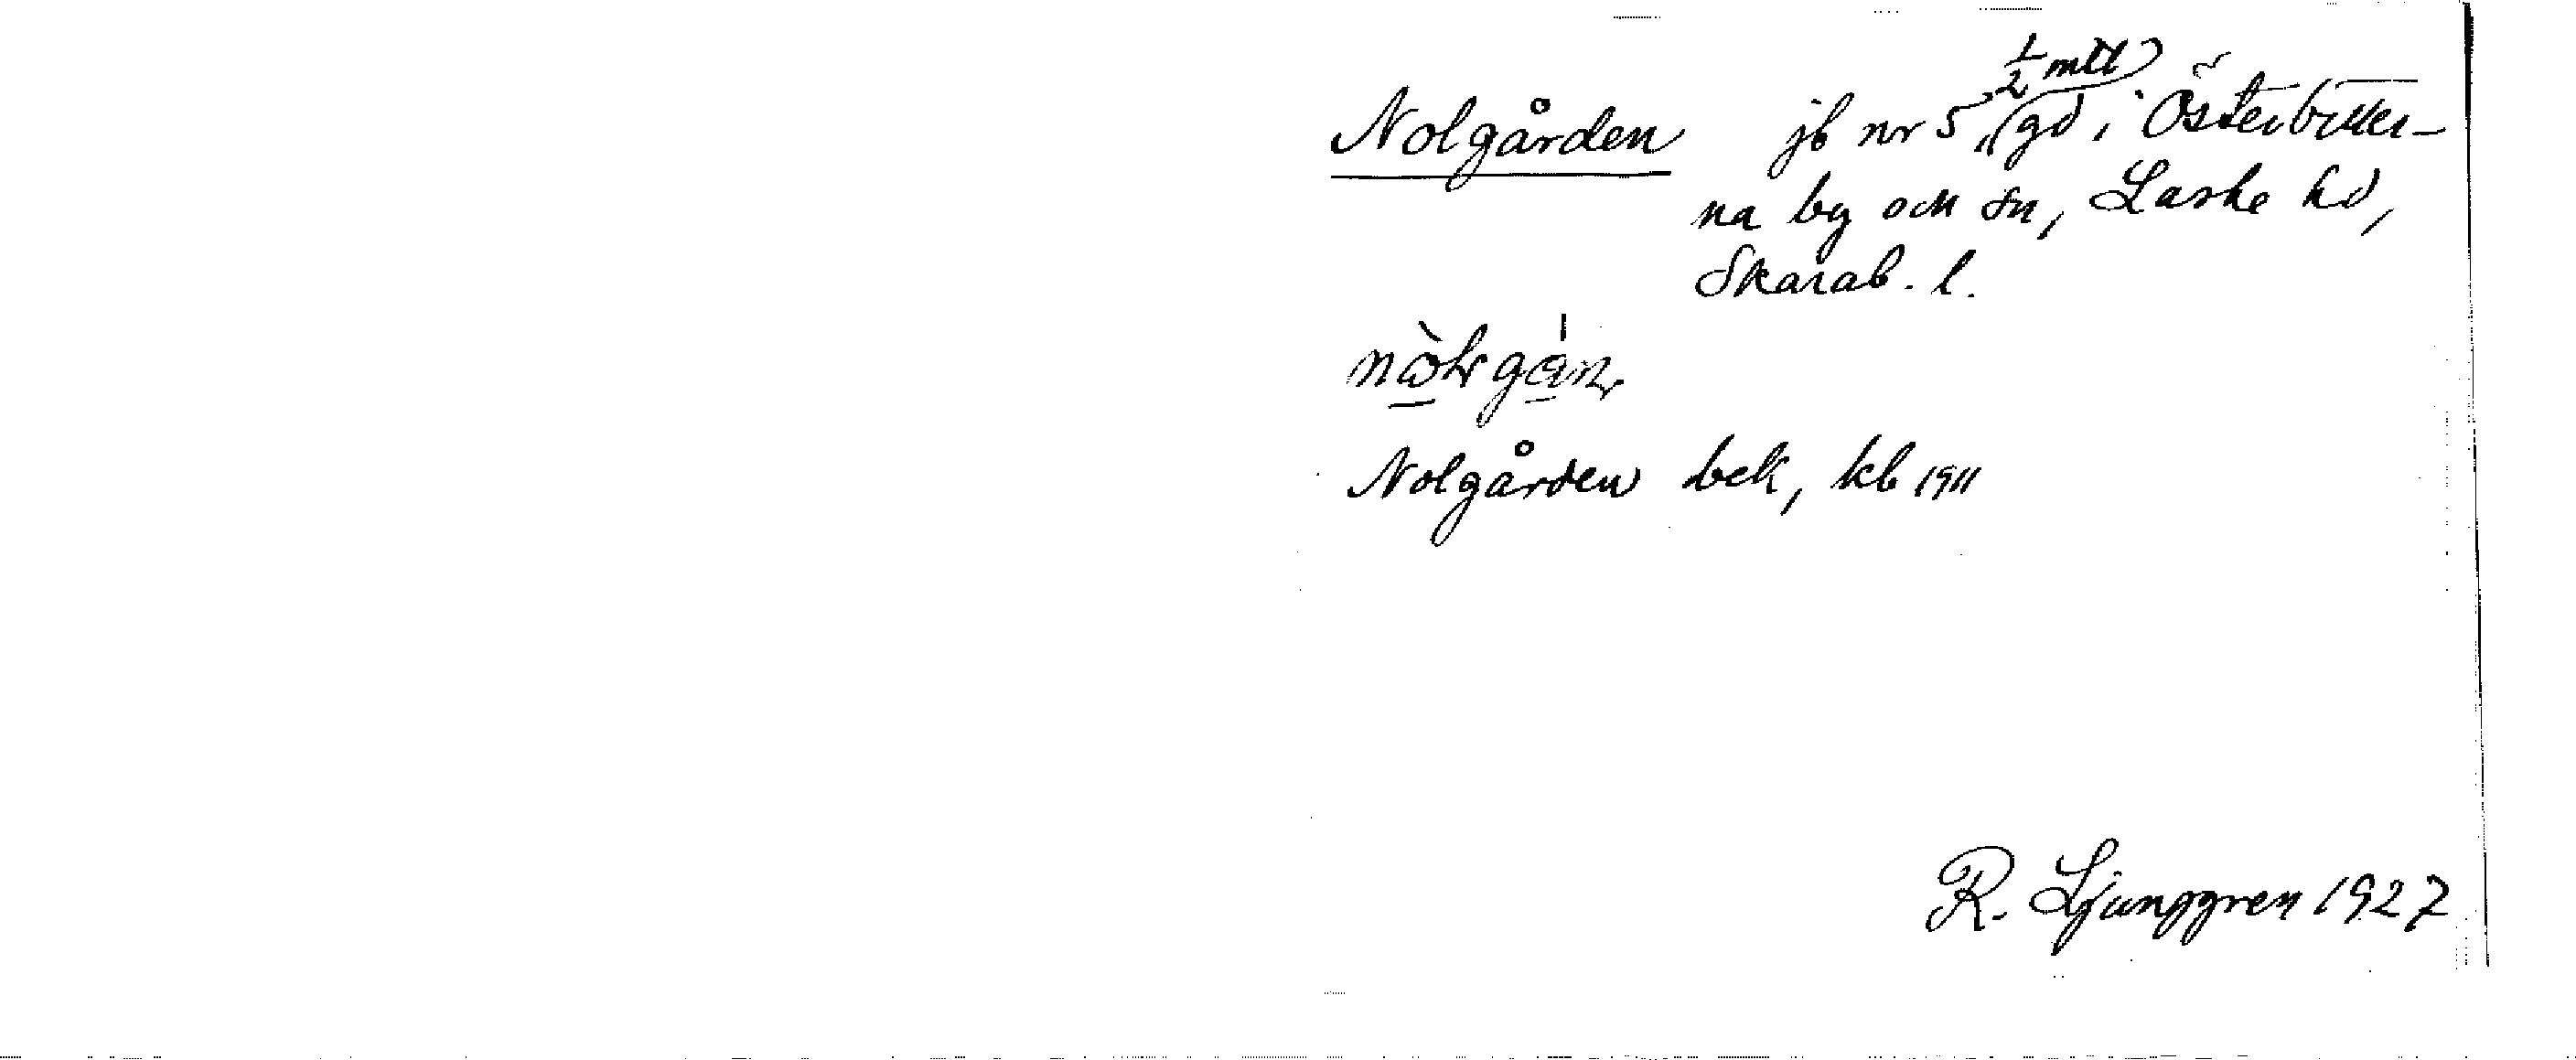 Nolgården jb nr 5, 1/2 mtl, gd i Österbitter-
na by och sn, Laske hd,
Skarab. l.
Nolgården bek, kb 1911
R. Ljunggren 1927